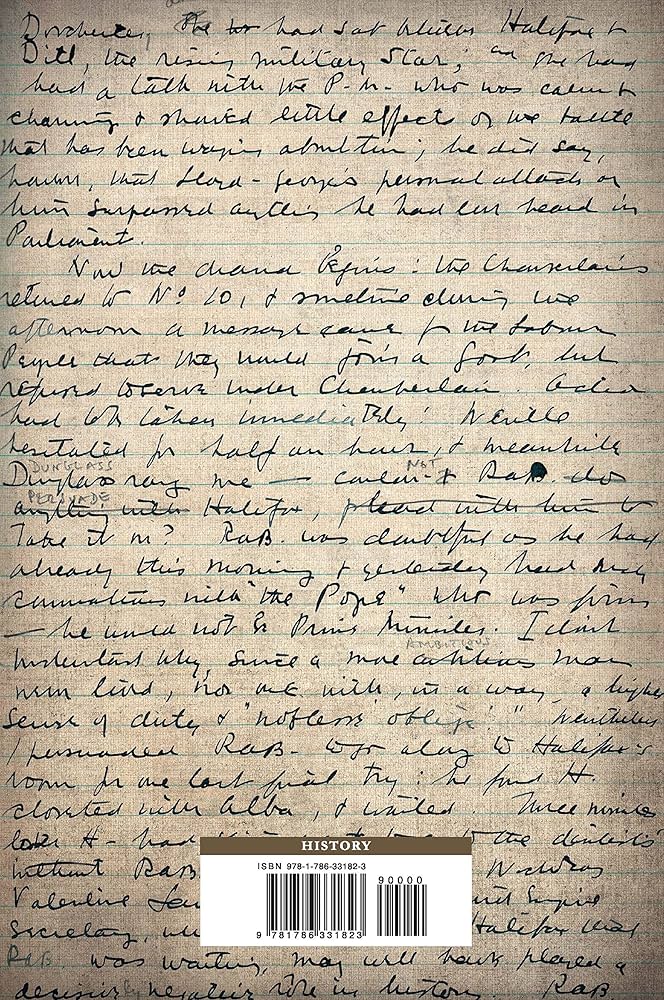 Dorchester, She had sat between Halifax &
Dill, the rising military star; and she had
had a talk with the P.M. who was calm &
charming & showed little effects of the battle
that has been waging about him; he did say,
however, that Lloyd-George's personal attack on
him surpassed anything he had ever heard in
Parliament.
Now the drama begins: the Chamberlains
returned to No 10, & sometime during the
afternoon a message came from the Labour
People that they would join a Govt, but
refused to serve under Chamberlain. Action
had to be taken immediately! Neville
hesitated for half an hour, & meanwhile
DUNGLASS NOT
Dunglass rang me — couldn't RaB. do
PERSUADE
anything with Halifax, plead with him to
Take it on? RaB. was doubtful as he had
already this morning & yesterday had such
conversations with "the Pope" who was firm
— he would not be Prime Minister. I don't
AMBITIOUS
understand why, since a more ambitious man
never lived, nor one with, in a way, a higher
sense of duty & "noblesse oblige!" Nevertheless
I persuaded RaB. to go along to Halifax's
room for one last final try: he found H.
closeted with Alba, & waited. Three minutes
later H- had to the dentist's
without RaB
Valentine Empire
Secretary, Halifax that
RaB. was waiting, may well have played a
decisively negative role in history. RaB
HISTORY
ISBN 978-1-786-33182-3
90000
9 781786 331823